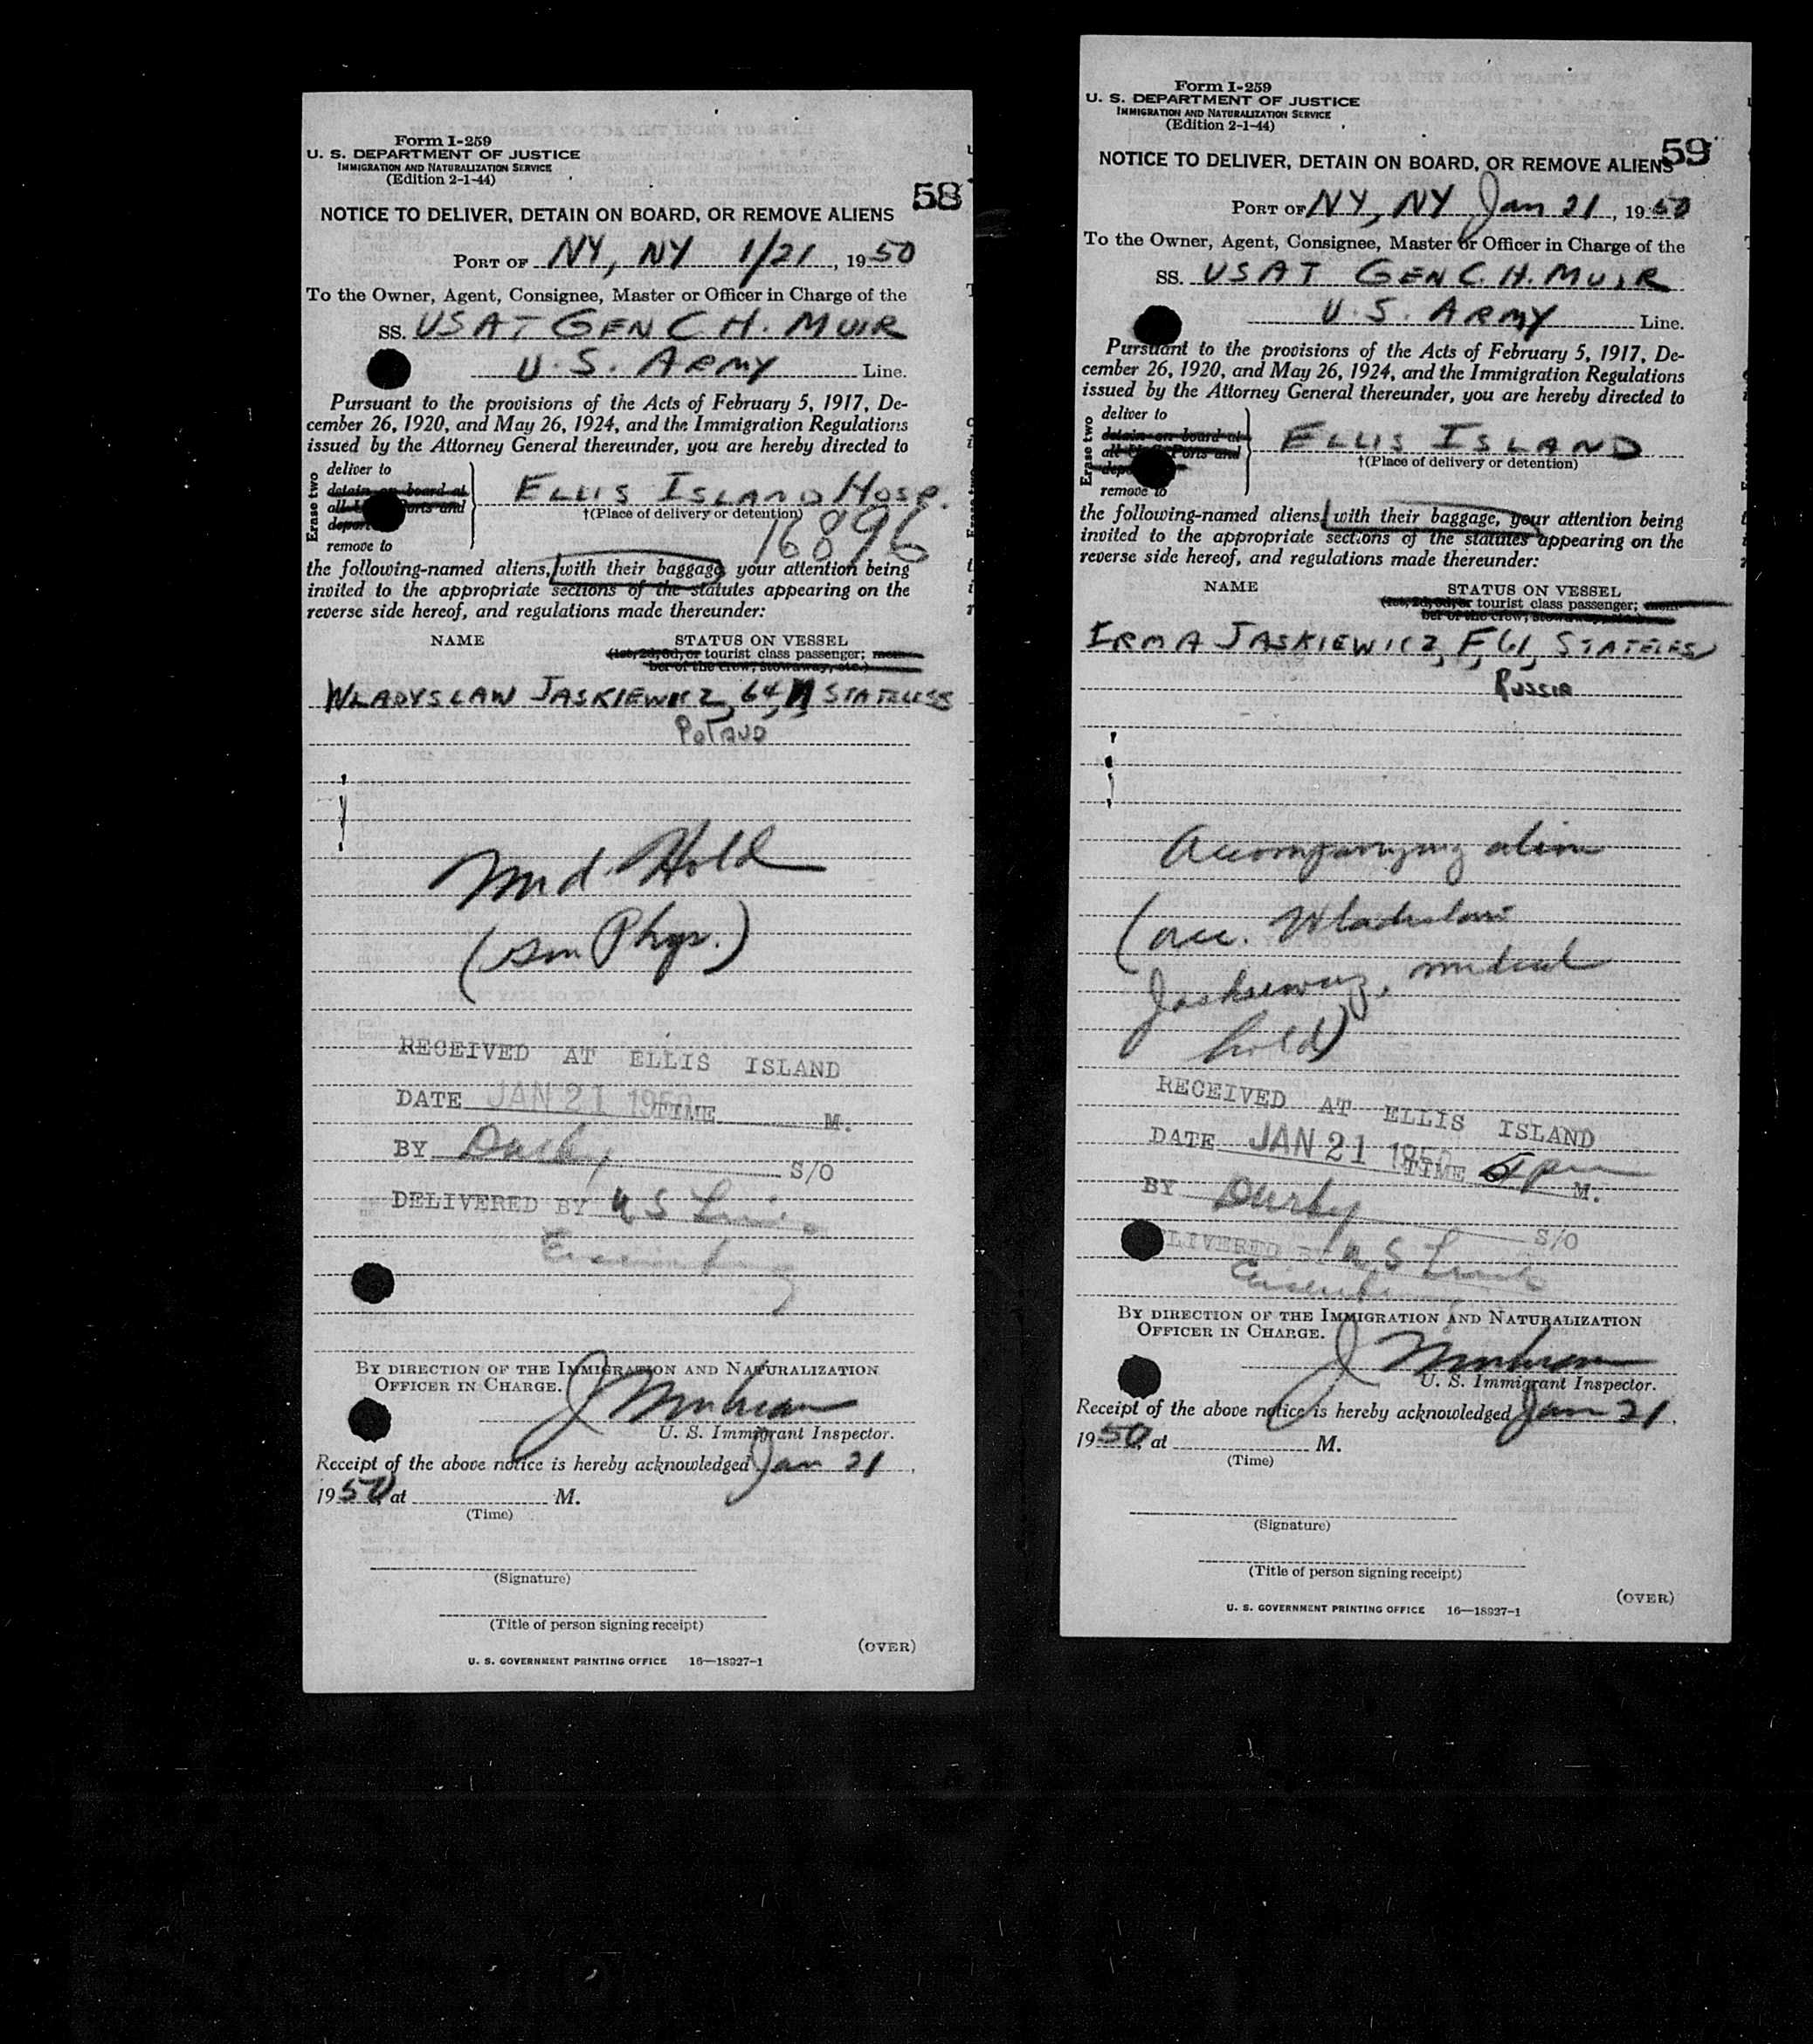 Form I-259
U. S. DEPARTMENT OF JUSTICE
IMMIGRATION AND NATURALIZATION SERVICE
(Edition 2-1-44)
58
NOTICE TO DELIVER, DETAIN ON BOARD, OR REMOVE ALIENS
PORT OF NY, NY 1/21, 1950
To the Owner, Agent, Consignee, Master or Officer in Charge of the
SS. USAT GEN C H. MUIR
U.S. ARMY Line.
Pursuant to the provisions of the Acts of February 5, 1917, De-
cember 26, 1920, and May 26, 1924, and the Immigration Regulations
issued by the Attorney General thereunder, you are hereby directed to
Erase two
deliver to
detain on board at
all Ports and
remove to
ELLIS ISLAND HOSP.
†(Place of delivery or detention)
16896
the following-named aliens, with their baggage, your attention being
invited to the appropriate sections of the statutes appearing on the
reverse side hereof, and regulations made thereunder:
NAME STATUS ON VESSEL
(1st, 2d, 3d, or tourist class passenger; mem-
ber of the crew, stowaway, etc.)
WLADYSLAW JASKIEWICZ, 64, M STATELESS
POLAND
Med. Hold
(Phys.)
RECEIVED AT ELLIS ISLAND
DATE JAN 21 1950 TIME M.
BY Darby S/O
DELIVERED BY U S Lines
BY DIRECTION OF THE IMMIGRATION AND NATURALIZATION
OFFICER IN CHARGE.
U. S. Immigrant Inspector.
Receipt of the above notice is hereby acknowledged Jan 21,
1950, at M.
(Time)
(Signature)
(Title of person signing receipt)
(OVER)
U. S. GOVERNMENT PRINTING OFFICE 16—18927-1
Form I-259
U. S. DEPARTMENT OF JUSTICE
IMMIGRATION AND NATURALIZATION SERVICE
(Edition 2-1-44)
59
NOTICE TO DELIVER, DETAIN ON BOARD, OR REMOVE ALIENS
PORT OF NY, NY Jan 21, 1950
To the Owner, Agent, Consignee, Master or Officer in Charge of the
SS. USAT GEN C. H. MUIR
U.S. ARMY Line.
Pursuant to the provisions of the Acts of February 5, 1917, De-
cember 26, 1920, and May 26, 1924, and the Immigration Regulations
issued by the Attorney General thereunder, you are hereby directed to
Erase two
deliver to
detain on board at
all Ports and
remove to
ELLIS ISLAND
†(Place of delivery or detention)
the following-named aliens, with their baggage, your attention being
invited to the appropriate sections of the statutes appearing on the
reverse side hereof, and regulations made thereunder:
NAME STATUS ON VESSEL
(1st, 2d, 3d, or tourist class passenger; mem-
ber of the crew, stowaway, etc.)
IRMA JASKIEWICZ, F, 61, STATELESS
RUSSIA
Accompanying alien
(acc. Wladislaw
Jaskiewicz, medical
hold)
RECEIVED AT ELLIS ISLAND
DATE JAN 21 1950 TIME 5 pm M.
BY Darby S/O
DELIVERED BY U S Lines
BY DIRECTION OF THE IMMIGRATION AND NATURALIZATION
OFFICER IN CHARGE.
U. S. Immigrant Inspector.
Receipt of the above notice is hereby acknowledged Jan 21,
1950, at M.
(Time)
(Signature)
(Title of person signing receipt)
(OVER)
U. S. GOVERNMENT PRINTING OFFICE 16—18927-1